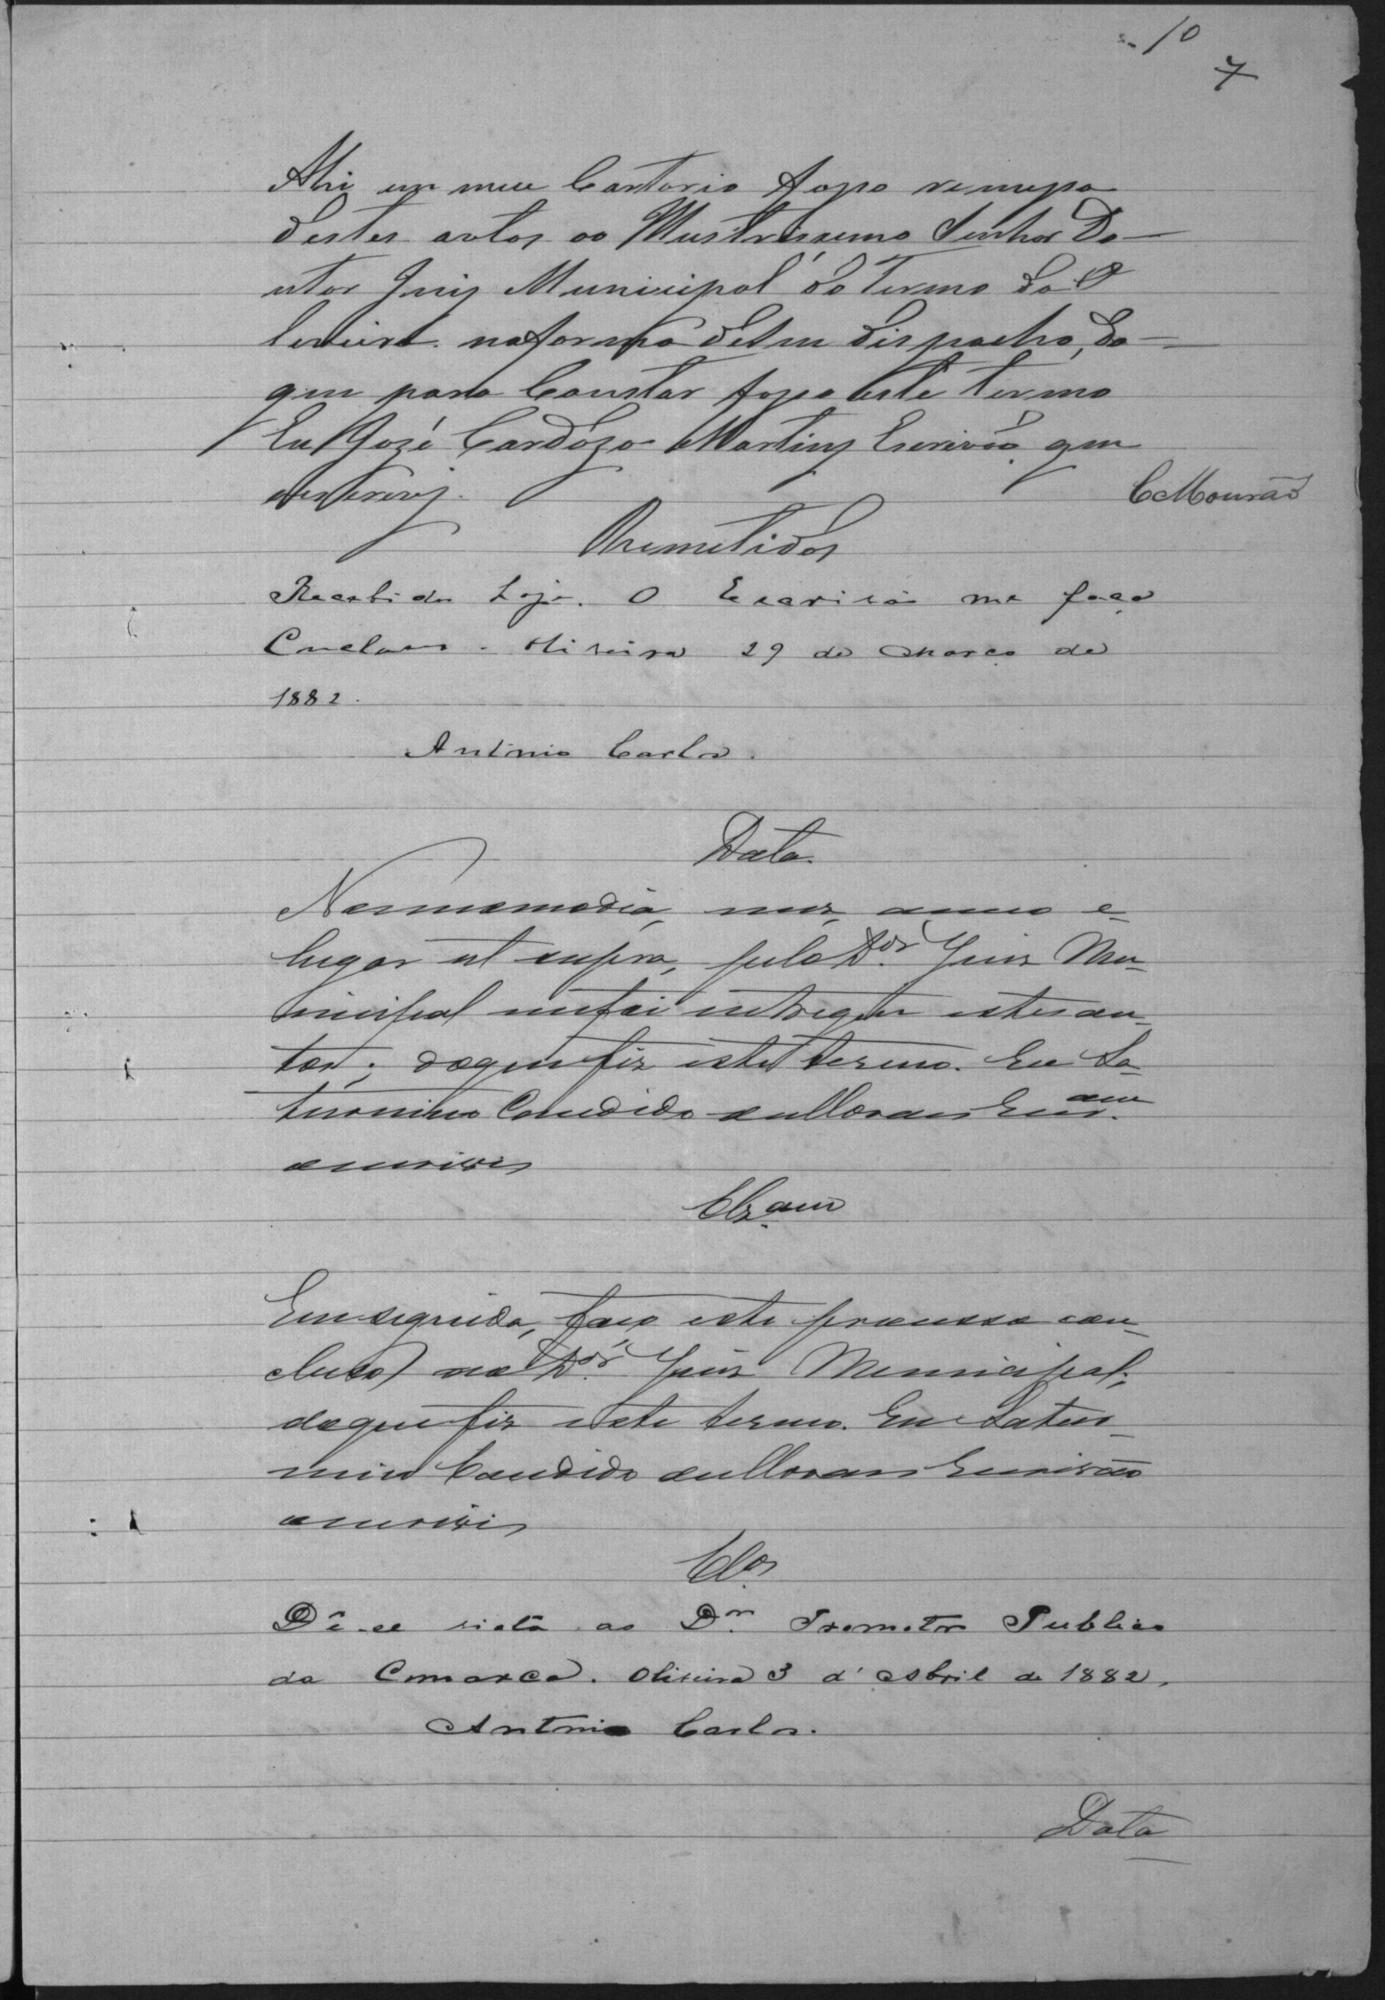 10
7
Ahi em meu Cartorio faço remeça
destes autos ao Illustrissimo Senhor Do-
utor Juiz Municipal do Termo da O
liveira na forma de seu dispacho, do
que para Constar faço este termo
Eu José Cardozo Martins Escrivão que
escrevy.
CMourão
Remetidos
Recebidos hoje. O Escrivão me faça
Conclusos. Oliveira 29 de Março de
1882.
Antonio Carlos.
Data.
No mesmo dia, mez, anno e
lugar ut supra, pelo Dor. Juiz Mu-
nicipal me foi entregue estes au-
tos; do que fiz este termo. Eu Sa-
turnino Candido
escrivi
Clzam
Em seguida, faço este processo con-
cluso ao Dor. Juiz Municipal;
do que fiz este termo. Eu Satur-
nino Candido Escrivão
escrivi
Clos
Dê-se vista ao Dor. Promotor Publico
da Comarca. Oliveira 3 d'Abril de 1882.
Antonio Carlos.
Data